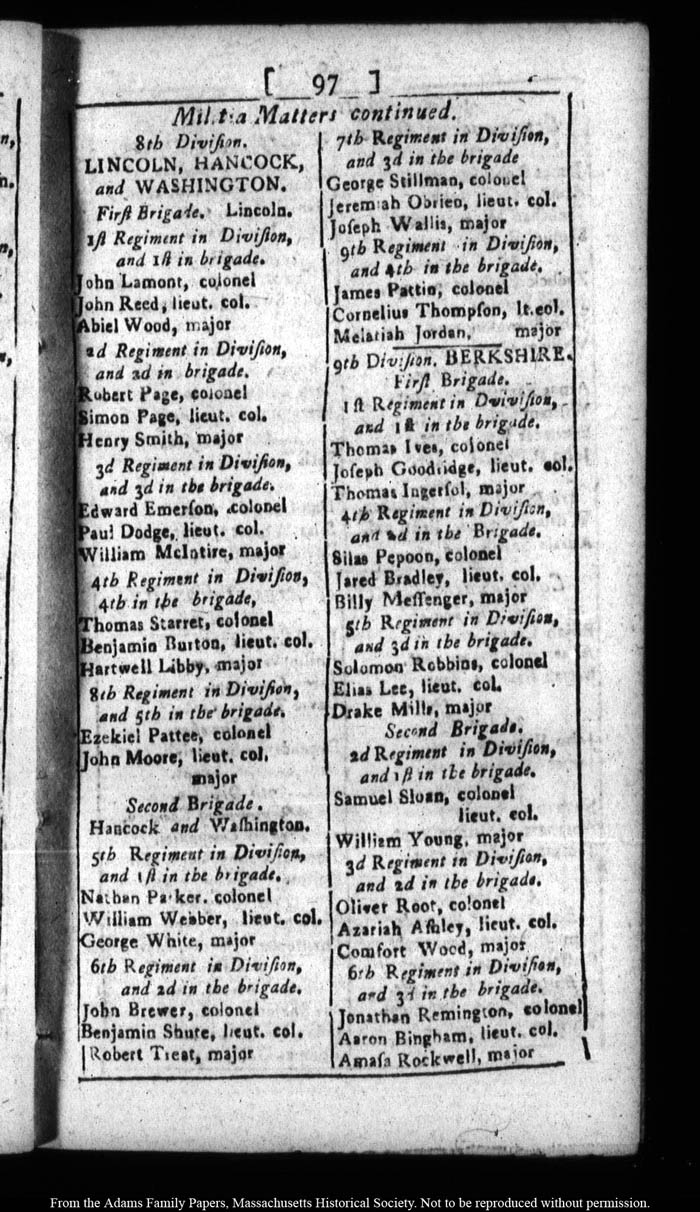 [ 97 ]
Militia Matters continued.
8th Diviſion.
LINCOLN, HANCOCK,
and WASHINGTON.
Firſt Brigade. Lincoln.
1ſt Regiment in Diviſion,
and 1ſt in brigade.
John Lamont, colonel
John Reed, lieut. col.
Abiel Wood, major
2d Regiment in Diviſion,
and 2d in brigade.
Robert Page, colonel
Simon Page, lieut. col.
Henry Smith, major
3d Regiment in Diviſion,
and 3d in the brigade.
Edward Emerſon, colonel
Paul Dodge, lieut. col.
William McIntire, major
4th Regiment in Diviſion,
4th in the brigade,
Thomas Starret, colonel
Benjamin Burton, lieut. col.
Hartwell Libby, major
8th Regiment in Diviſion,
and 5th in the brigade.
Ezekiel Pattee, colonel
John Moore, lieut. col.
major
Second Brigade.
Hancock and Waſhington.
5th Regiment in Diviſion,
and 1ſt in the brigade.
Nathan Parker. colonel
William Webber, lieut. col.
George White, major
6th Regiment in Diviſion,
and 2d in the brigade.
John Brewer, colonel
Benjamin Shute, lieut. col.
Robert Treat, major
7th Regiment in Diviſion,
and 3d in the brigade
George Stillman, colonel
Jeremiah Obrien, lieut. col.
Joſeph Wallis, major
9th Regiment in Diviſion,
and 4th in the brigade.
James Pattin, colonel
Cornelius Thompſon, lt.col.
Melatiah Jordan, major
9th Diviſion. BERKSHIRE.
Firſt Brigade.
1ſt Regiment in Dviviſion,
and 1ſt in the brigade.
Thomas Ives, colonel
Joſeph Goodridge, lieut. col.
Thomas Ingerſol, major
4th Regiment in Diviſion,
and 2d in the Brigade.
Silas Pepoon, colonel
Jared Bradley, lieut. col.
Billy Meſſenger, major
5th Regiment in Diviſion,
and 3d in the brigade.
Solomon Robbins, colonel
Elias Lee, lieut. col.
Drake Mills, major
Second Brigade.
2d Regiment in Diviſion,
and 1ſt in the brigade.
Samuel Sloan, colonel
lieut. col.
William Young, major
3d Regiment in Diviſion,
and 2d in the brigade.
Oliver Root, colonel
Azariah Aſhley, lieut. col.
Comfort Wood, major
6th Regiment in Diviſion,
and 3d in the brigade.
Jonathan Remington, colonel
Aaron Bingham, lieut. col.
Amaſa Rockwell, major
From the Adams Family Papers, Massachusetts Historical Society. Not to be reproduced without permission.